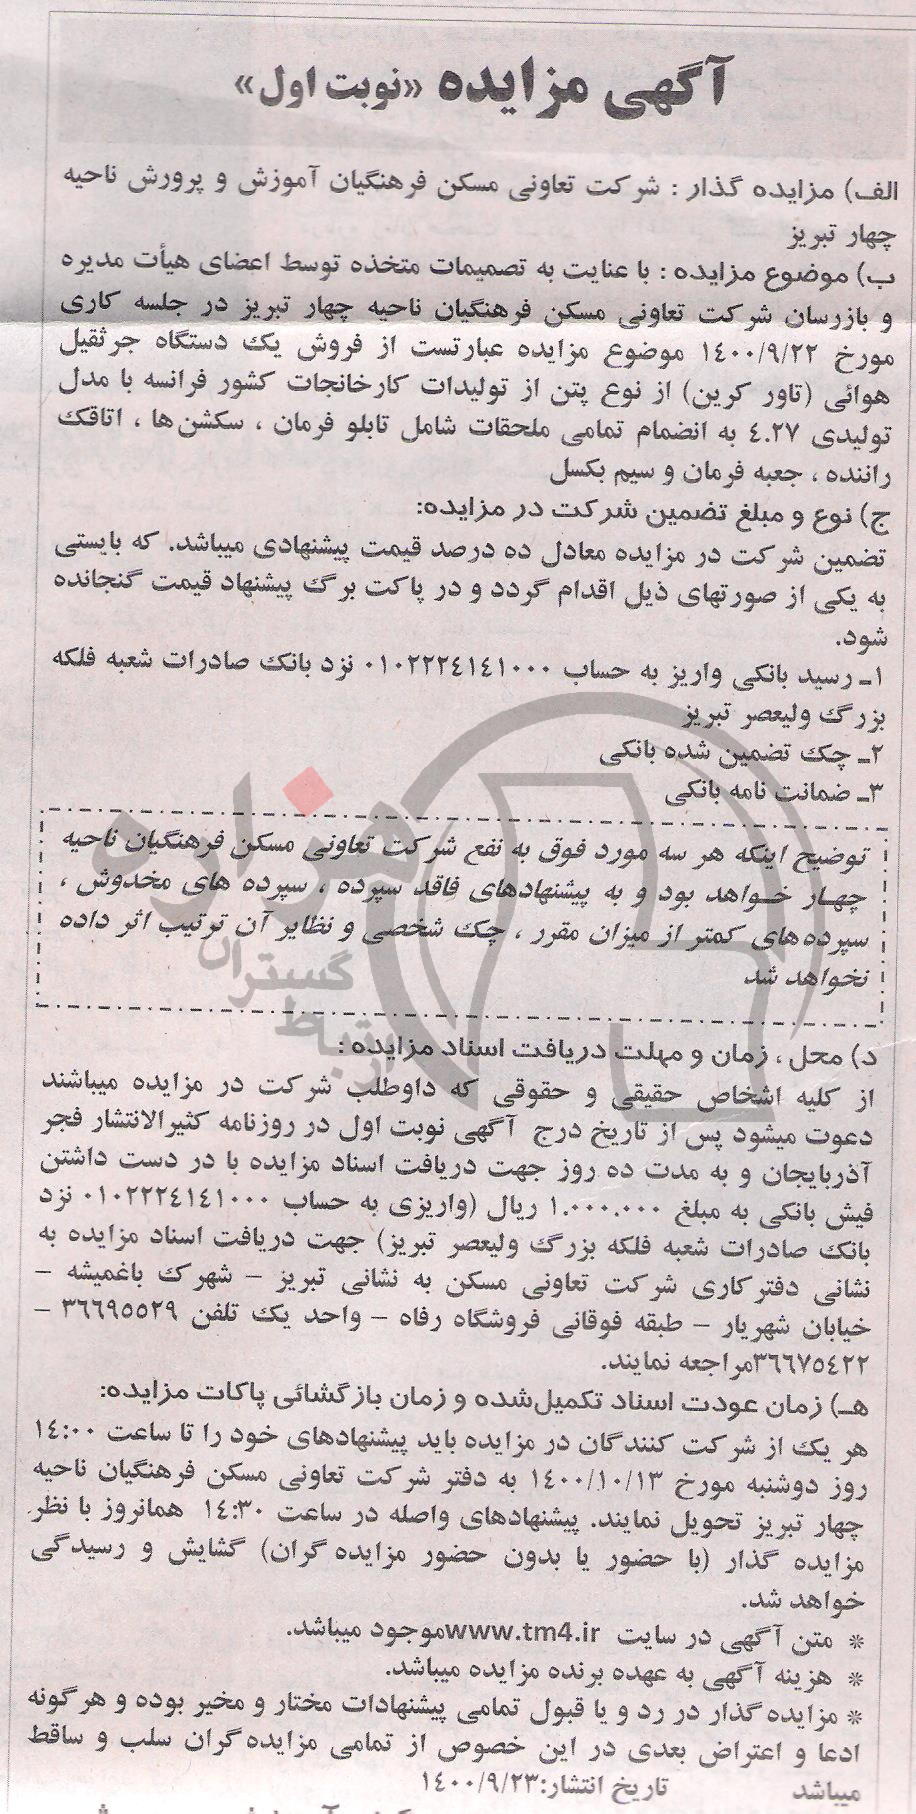 آگهی مزایده «نوبت اول»
الف) مزایده گذار : شرکت تعاونی مسکن فرهنگیان آموزش و پرورش ناحیه
چهار تبریز
ب) موضوع مزایده : با عنایت به تصمیمات متخذه توسط اعضای هیأت مدیره
و بازرسان شرکت تعاونی مسکن فرهنگیان ناحیه چهار تبریز در جلسه کاری
مورخ ۱۴۰۰/۹/۲۲ موضوع مزایده عبارتست از فروش یک دستگاه جرثقیل
هوائی (تاور کرین) از نوع پتن از تولیدات کارخانجات کشور فرانسه با مدل
تولیدی ۴.۲۷ به انضمام تمامی ملحقات شامل تابلو فرمان ، سکشن‌ها ، اتاقک
راننده ، جعبه فرمان و سیم بکسل
ج) نوع و مبلغ تضمین شرکت در مزایده:
تضمین شرکت در مزایده معادل ده درصد قیمت پیشنهادی میباشد. که بایستی
به یکی از صورتهای ذیل اقدام گردد و در پاکت برگ پیشنهاد قیمت گنجانده
شود.
۱ـ رسید بانکی واریز به حساب ۰۱۰۲۲۲۴۱۴۱۰۰۰ نزد بانک صادرات شعبه فلکه
بزرگ ولیعصر تبریز
۲ـ چک تضمین شده بانکی
۳ـ ضمانت نامه بانکی
توضیح اینکه هر سه مورد فوق به نفع شرکت تعاونی مسکن فرهنگیان ناحیه
چهـار خـواهد بود و به پیشنهادهای فاقد سپرده ، سپرده های مخدوش ،
سپرده‌های کمتر از میزان مقرر ، چک شخصی و نظایر آن ترتیب اثر داده
نخواهد شد
هزاره
گستران
ارتباط
د) محل ، زمان و مهلت دریافت اسناد مزایده :
از کلیه اشخاص حقیقی و حقوقی که داوطلب شرکت در مزایده میباشند
دعوت میشود پس از تاریخ درج آگهی نوبت اول در روزنامه کثیرالانتشار فجر
آذربایجان و به مدت ده روز جهت دریافت اسناد مزایده با در دست داشتن
فیش بانکی به مبلغ ۱.۰۰۰.۰۰۰ ریال (واریزی به حساب ۰۱۰۲۲۲۴۱۴۱۰۰۰ نزد
بانک صادرات شعبه فلکه بزرگ ولیعصر تبریز) جهت دریافت اسناد مزایده به
نشانی دفتر کاری شرکت تعاونی مسکن به نشانی تبریز – شهرک باغمیشه –
خیابان شهریار – طبقه فوقانی فروشگاه رفاه – واحد یک تلفن ۳۶۶۹۵۵۲۹ –
۳۶۶۷۵۴۲۲مراجعه نمایند.
هـ) زمان عودت اسناد تکمیل‌شده و زمان بازگشائی پاکات مزایده:
هر یک از شرکت کنندگان در مزایده باید پیشنهادهای خود را تا ساعت ۱۴:۰۰
روز دوشنبه مورخ ۱۴۰۰/۱۰/۱۳ به دفتر شرکت تعاونی مسکن فرهنگیان ناحیه
چهار تبریز تحویل نمایند. پیشنهادهای واصله در ساعت ۱۴:۳۰ همانروز با نظر
مزایده گذار (با حضور یا بدون حضور مزایده گران) گشایش و رسیدگی
خواهد شد.
* متن آگهی در سایت www.tm4.irموجود میباشد.
* هزینه آگهی به عهده برنده مزایده میباشد.
* مزایده‌گذار در رد و یا قبول تمامی پیشنهادات مختار و مخیر بوده و هرگونه
ادعا و اعتراض بعدی در این خصوص از تمامی مزایده‌گران سلب و ساقط
میباشد تاریخ انتشار:۱۴۰۰/۹/۲۳